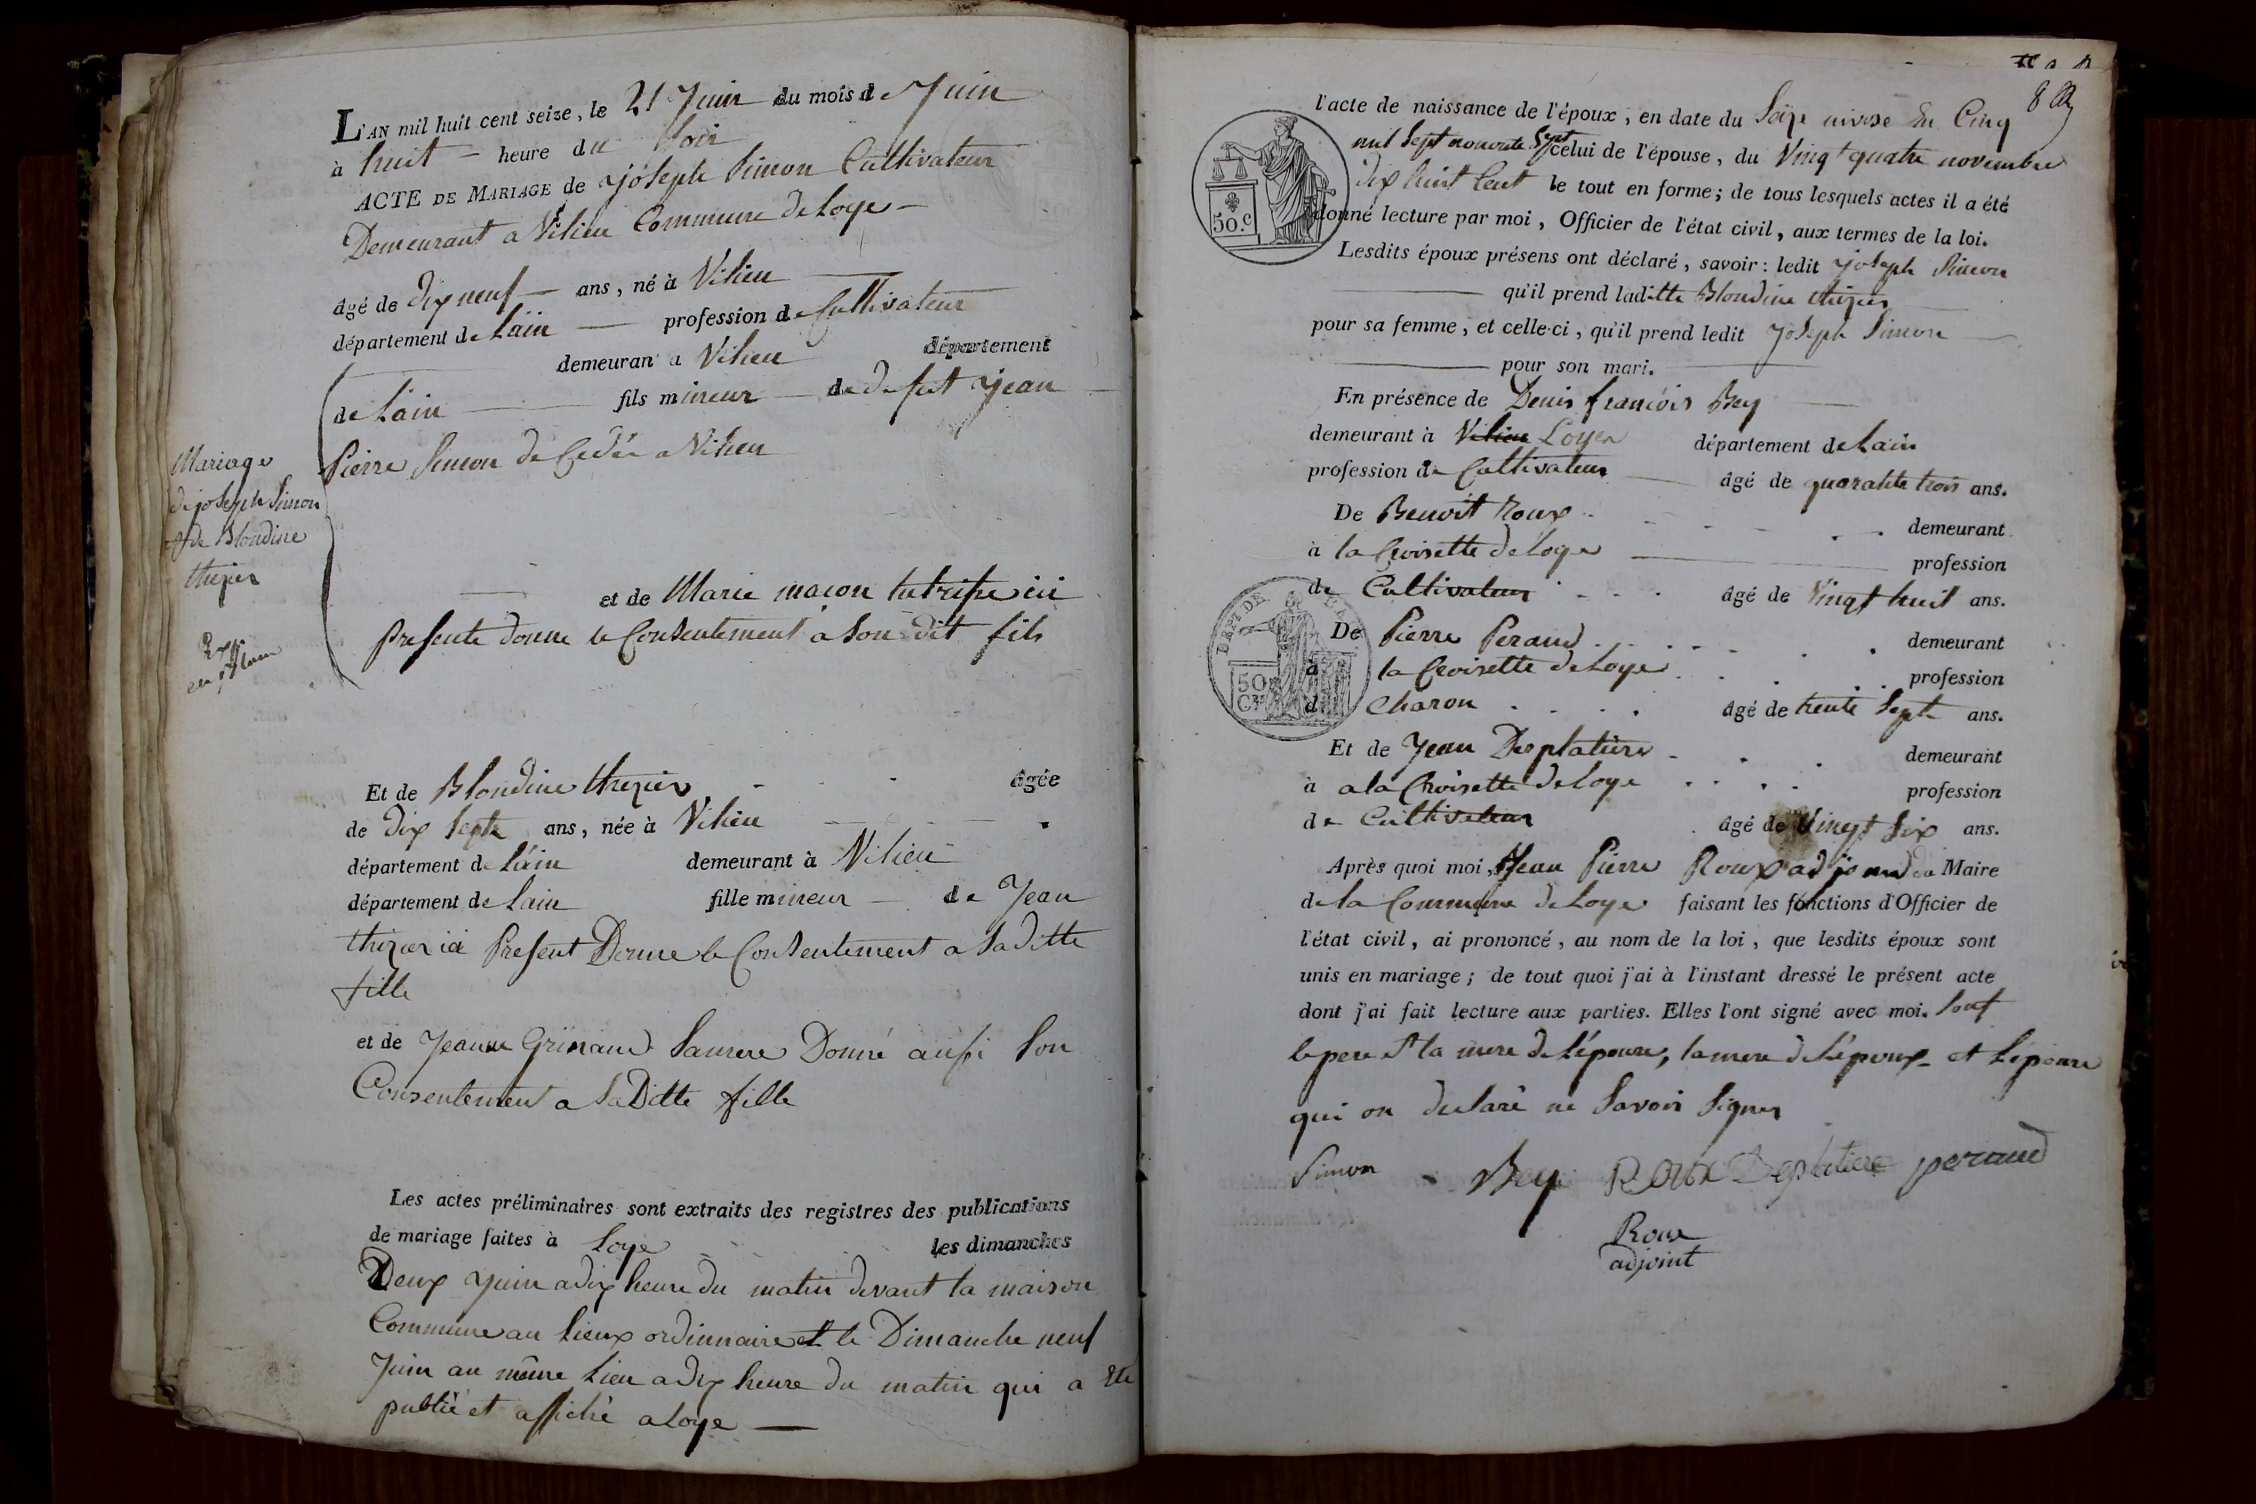 L'AN mil huit cent seize, le 21 Juin du mois de Juin
à huit heure du Soir
ACTE DE MARIAGE de joseph Simon Cultivateur
Demeurant a Vilieu Commune de Loye
âgé de dix neuf ans, né à Vilieu
département de Lain profession de Cultivateur
demeurant a Vilieu département
de Lain fils mineur de defut jean
Pierre Simon de Cedée a Vilieu
Mariage
de joseph Simon
& de Blondine
thezier
et de Marie macon tutrisse ici
presente donne le Consentement à Son dit fils
Et de Blondine thezier âgée
de dix Septe ans, née à Vilieu
département de Lain demeurant à Vilieu
département de Lain fille mineur de Jean
thezier ici Present Donne le Consentement a Saditte
fille
et de Jeanne Grinand Samere Donné aussi Son
Consentement a SaDitte fille
Les actes préliminaires sont extraits des registres des publications
de mariage faites à Loye les dimanches
Deux Juin adix heure du matin devant la maison
Commune au Lieux ordinnaire et le Dimanche neuf
Juin au même Lieu adix heure du matin qui a Eté
publié et affiché a loye
8
l'acte de naissance de l'époux, en date du Seize nivose En Cinq
mil Sept nonente Sept celui de l'épouse, du Vingt quatre novembre
dix huit Cent le tout en forme; de tous lesquels actes il a été
donné lecture par moi, Officier de l'état civil, aux termes de la loi.
50.c
Lesdits époux présens ont déclaré, savoir: ledit joseph Simon
qu'il prend laditte Blondine thezier
pour sa femme, et celle-ci, qu'il prend ledit joseph Simon
pour son mari.
En présence de Denis françois Bey
demeurant à Vilieu Loyes département de Lain
profession de Cultivateur âgé de quarante trois ans.
De Benoit Roux demeurant
à la Croisette de Loye profession
de Cultivateur âgé de Vingt huit ans.
De Pierre Peraud demeurant
à la Croisette de Loye profession
d. Charon âgé de trente Septe ans.
50
Et de Jean Desplatiere demeurant
à a la Croisette de Loye profession
de Cultivateur âgé de Vingt Six ans.
Après quoi moi, Jean Pierre Roux adjoind du Maire
de la Commune de Loye faisant les fonctions d'Officier de
l'état civil, ai prononcé, au nom de la loi, que lesdits époux sont
unis en mariage; de tout quoi j'ai à l'instant dressé le présent acte
dont j'ai fait lecture aux parties. Elles l'ont signé avec moi. Souf
le pere et la mere de L'épouse, la mere de L'époux et L'épouse
qui on declaré ne Savoir Signer
Simon Bey Roux Deplatiere peraud
Roux
adjoint